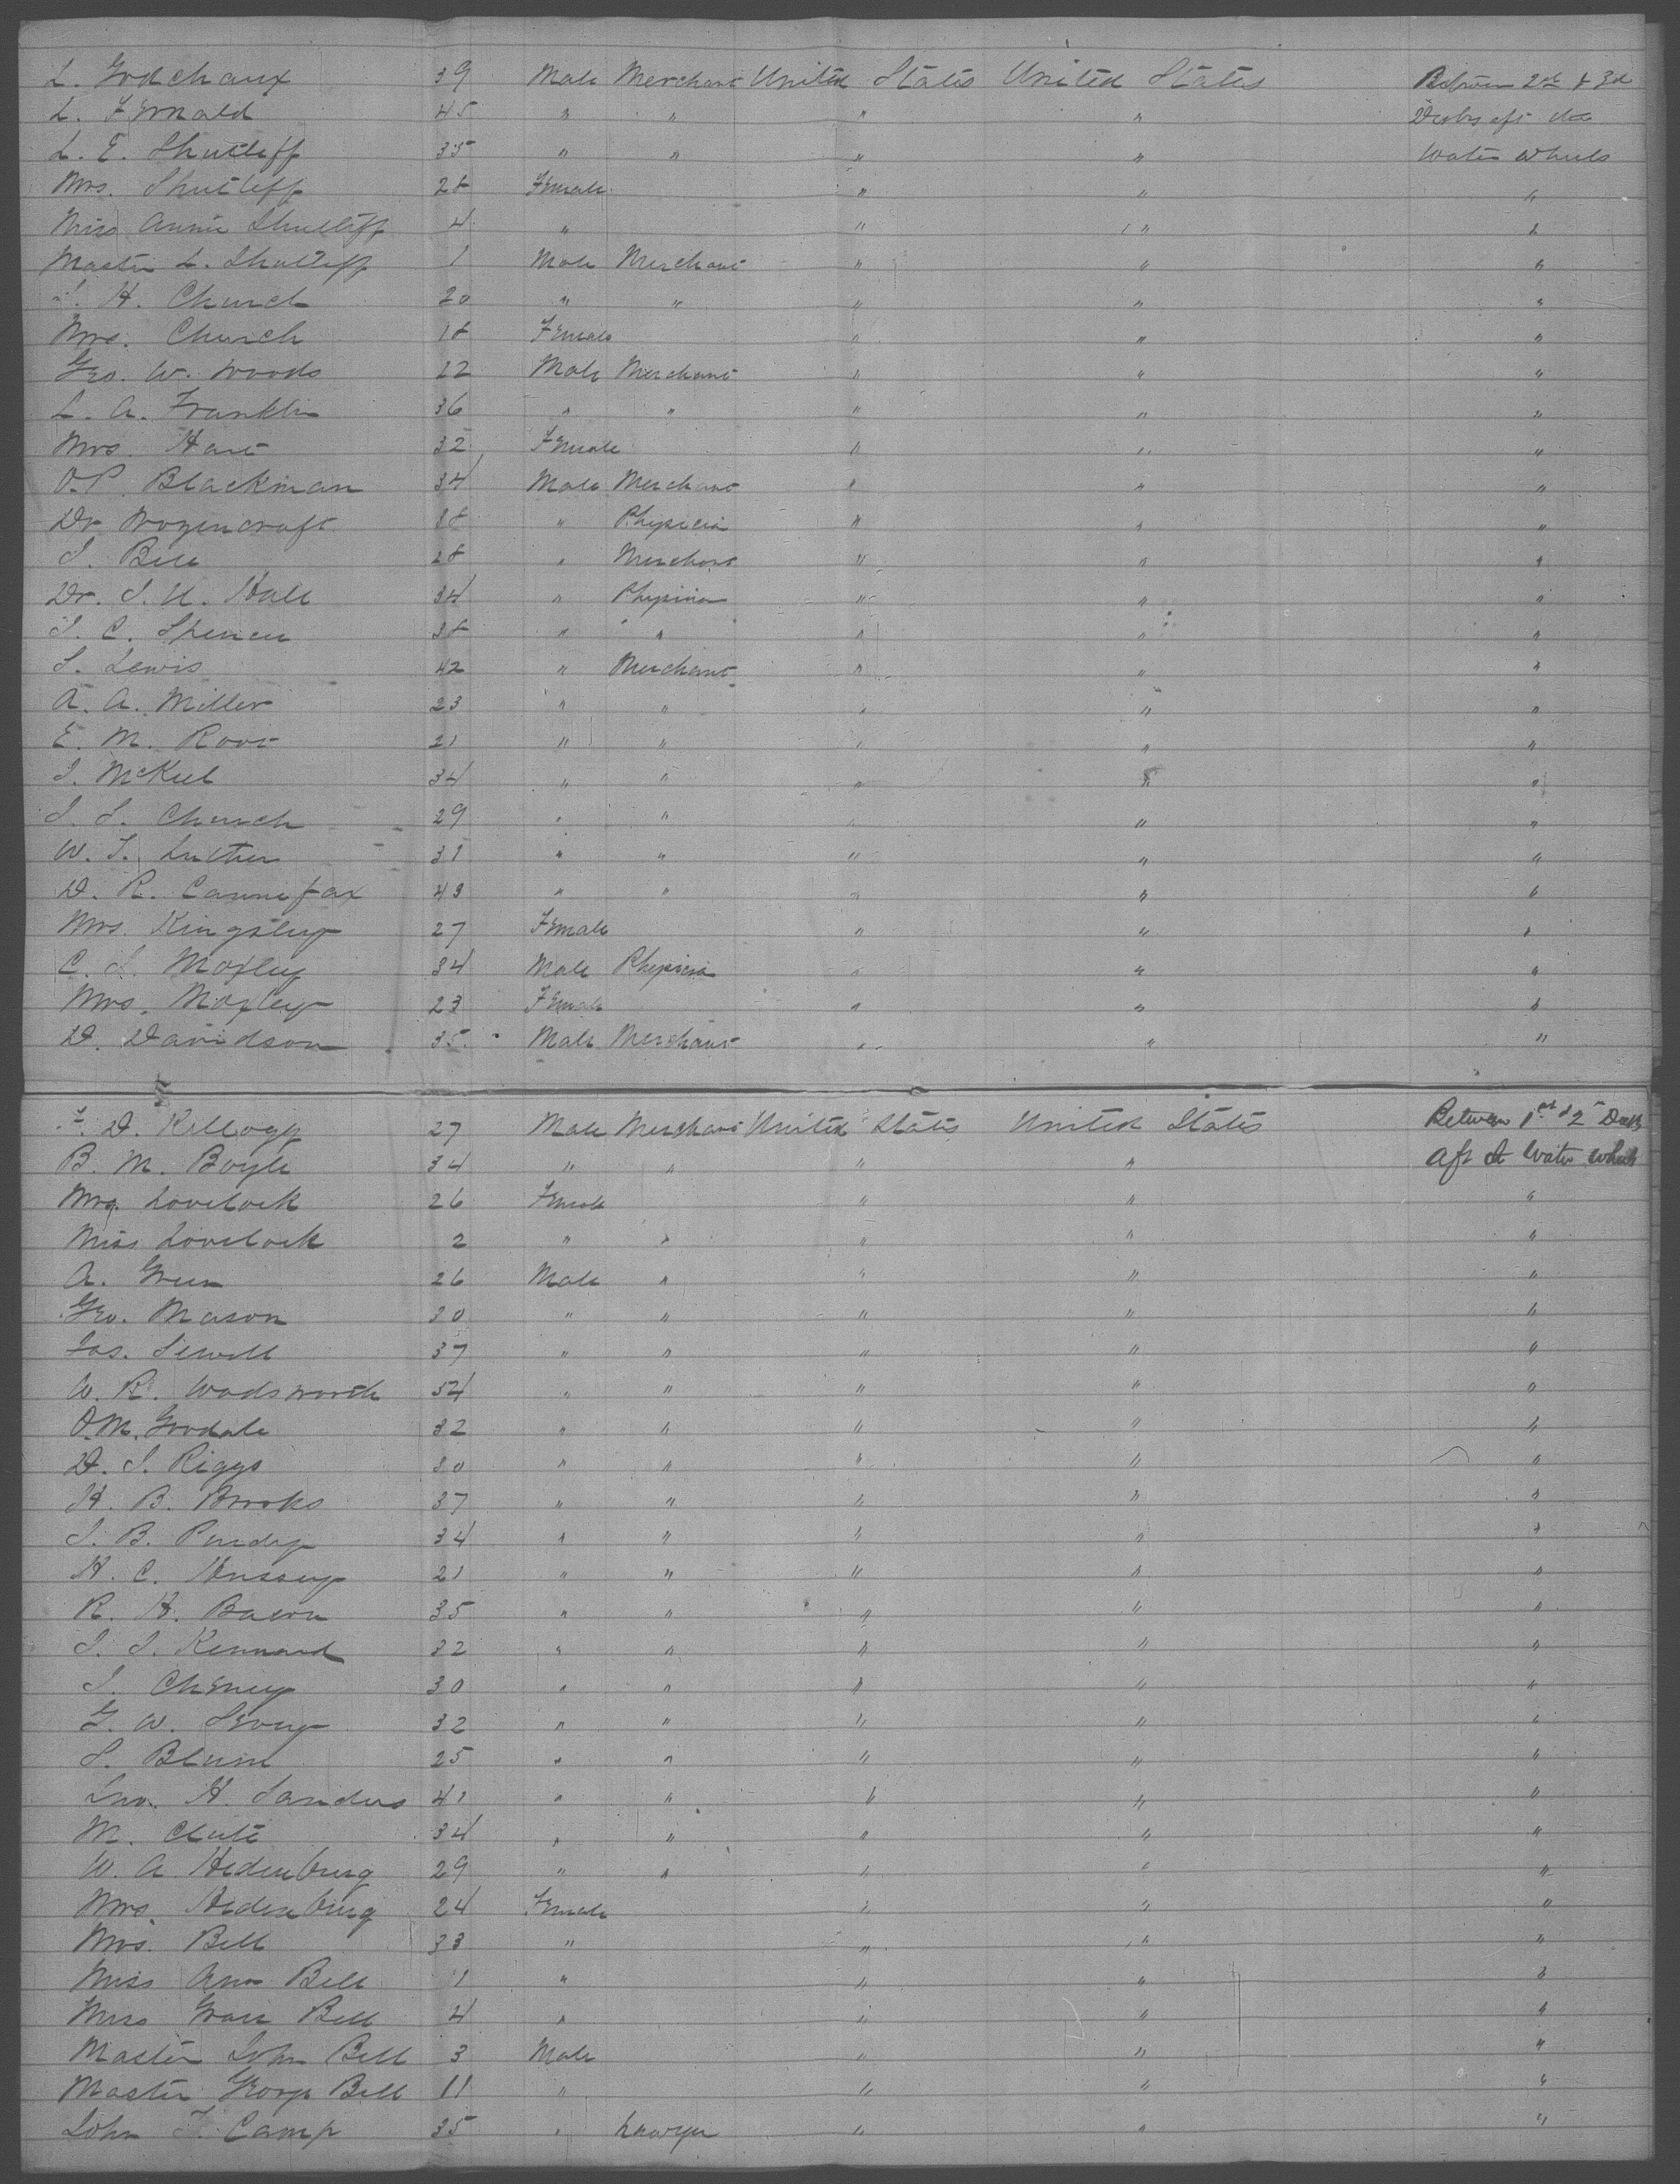 L. Godchaux 39 Male Merchant United States United States Between 2nd & 3d
L. Fernald 45 " " " " Decks aft the
L. E. Shutleff 35 " " " " Water Wheels
Mrs. Shutleff 28 Female " " "
Miss Annie Shutleff 4 " " " "
Master L. Shutleff 1 Male Merchant " " "
H. Church 20 " " " " "
Mrs. Church 18 Female " " "
Geo. W. Woods 22 Male Merchant " " "
L. A. Franklin 36 " " " " "
Mrs. Hart 32 Female " " "
O. P. Blackman 34 Male Merchant " " "
Dr Wozencraft 38 " Physician " " "
S. Bell 28 " Merchant " " "
Dr. S. U. Hall 34 " Physician " " "
S. C. Spencer 38 " " " " "
S. Lewis 42 " Merchant " " "
A. A. Miller 23 " " " " "
E. M. Root 21 " " " " "
J. McKeel 34 " " " " "
S. S. Church 29 " " " " "
W. T. Luther 31 " " " " "
D. R. Cannifax 43 " " " " "
Mrs. Kingsley 27 Female " " "
C. S. Moxley 34 Male Physician " " "
Mrs. Moxley 23 Female " " "
D. Davidson 35 Male Merchant " " "
D. Kellogg 27 Male Merchant United States United States Between 1st & 2d Decks
B. M. Boyle 34 " " " " Aft A Water Wheels
Mrs. Lovelock 26 Female " " "
Miss Lovelock 2 " " " " "
A. Green 26 Male " " " "
Geo. Mason 30 " " " " "
Jas. Sewell 37 " " " " "
W. R. Wadsworth 34 " " " " "
O. M. Goodale 32 " " " " "
D. S. Riggs 30 " " " " "
H. B. Brooks 37 " " " " "
J. B. Purdy 34 " " " " "
H. C. Hussey 21 " " " " "
R. H. Bacon 35 " " " " "
J. J. Kennard 32 " " " " "
J. Cheney 30 " " " " "
G. W. 32 " " " " "
S. Blum 25 " " " " "
Jno. H. Sanders 41 " " " " "
M. Clute 34 " " " " "
W. A. Hedenburg 29 " " " " "
Mrs. Hedenburg 24 Female " " "
Mrs. Bell 33 " " " "
Miss Ann Bell 11 " " " "
Miss Grace Bell 4 " " " "
Master John Bell 3 Male " " "
Master George Bell 11 " " " "
John F. Camp 35 " Lawyer " " "